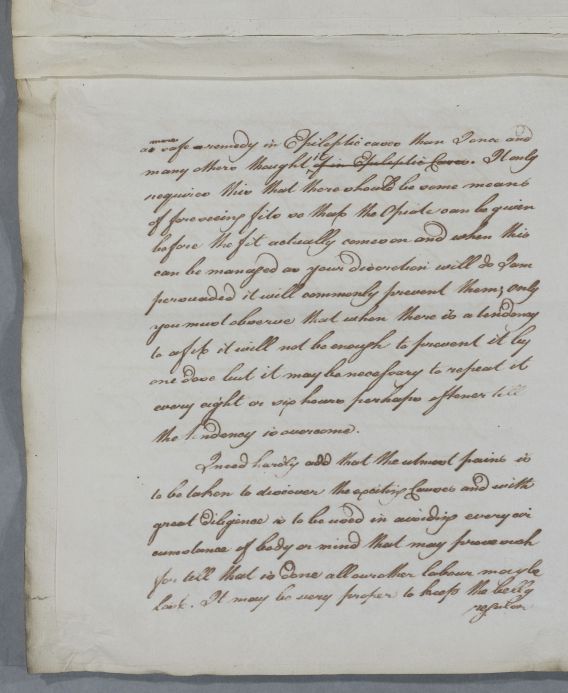 a more safe remedy in Epileptic cases than I once and
many others thought it if in Epileptic Cases. It only
requires this that there should be some means
of foreseeing fits so that the Opiate can be given
before the fit actually comes on and when this
can be managed as your discretion will do I am
persuaded it will commonly prevent them; only
you must observe that when there is a tendency
to a fit it will not be enough to prevent it by
one dose but it may be necessary to repeat it
every eight or six hours perhaps oftener till
the tendency is overcome.
I need hardly add that the utmost pains is
to be taken to discover the exciting Causes and with
great diligence is to be used in avoiding every cir
cumstance of body or mind that may prove such
for till that is done all our other labour may be
lost. It may be very proper to keep the belly
regular